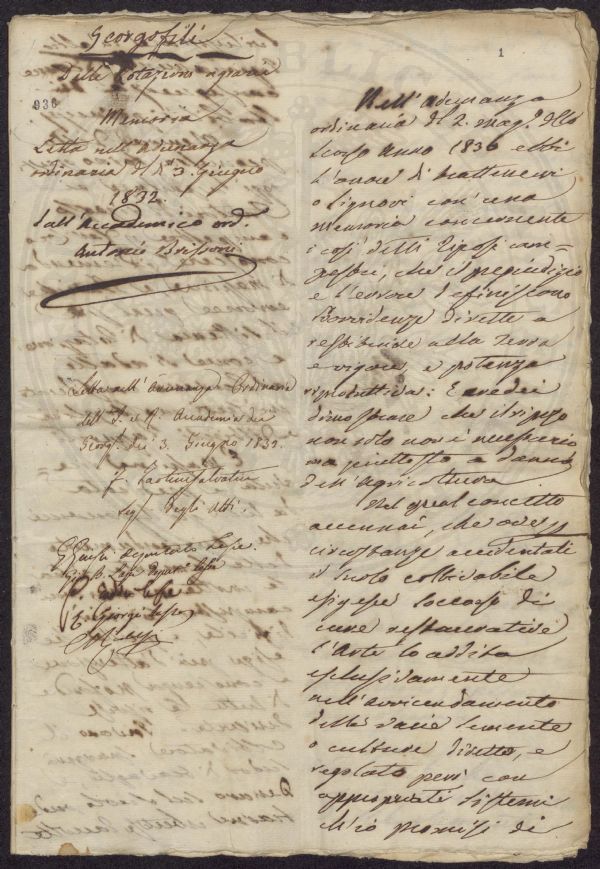 Georgofili
Delle Rotazioni agrarie
936
Memoria
Letta nell'Adunanza
ordinaria del dì 3. Giugno
1832.
dall'Accademico ord.
Antonio
Letta nell'Adunanza Ordinaria
dell' I. e R. Accademia dei
Georg. dei 3. Giugno 1832.
Seg. degli Atti.
Deputato
1
Nell'Adunanza
ordinaria di 2. mag. dello
scorso anno 1830 ebbi
l'onore di trattenervi
o Signori con una
memoria concernente
i così detti riposi cam=
pestri, che il pregiudizio
e l'errore definiscono
Provvidenze dirette a
restituire alla terra
e vigore, e potenza
riproduttiva: E credei
dimostrare che il riposo
non solo non è necessario
ma piuttosto a danno
dell'Agricoltura.
Nel qual concetto
accennai, che ove
circostanze accidentali
il suolo coltivabile
esigesse soccorso di
cure restaurative
l'Arte lo addita
nell'avvicendamento
delle varie semente
o culture diretto, e
regolato però con
appropriati sistemi
ch'io promisi di